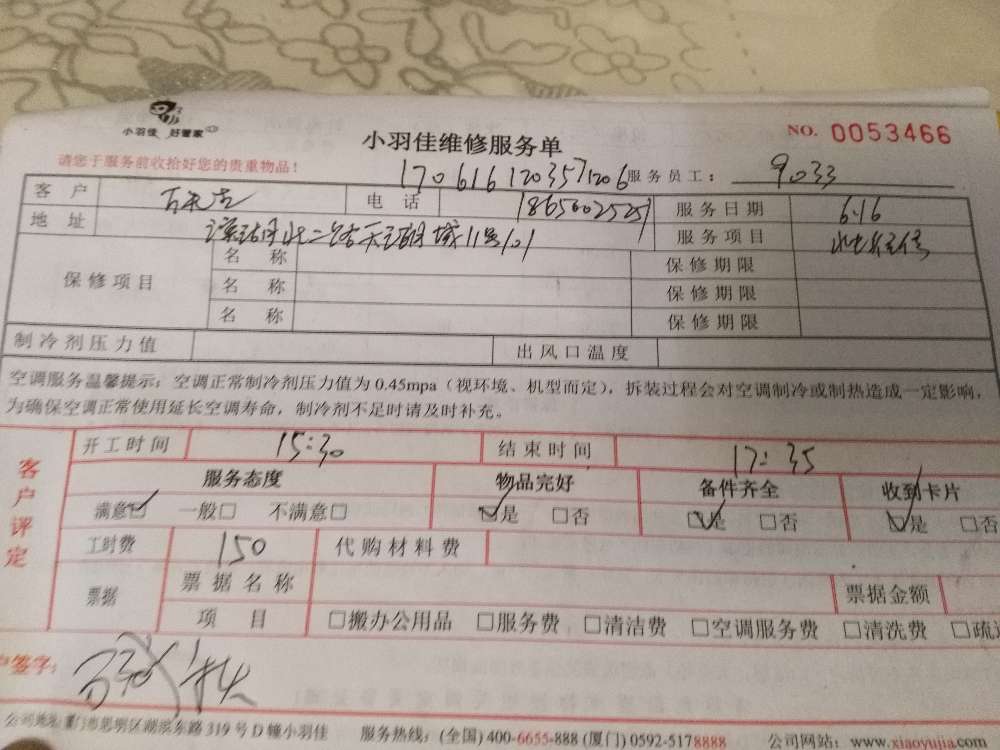 小羽佳 好管家
小羽佳维修服务单
NO. 0053466
请您于服务前收拾好您的贵重物品！
170616120357206 服务员工： 9033
客 户 电 话 服务日期 6.16
地 址 11号101 服务项目
保修项目 名 称 保修期限
名 称 保修期限
名 称 保修期限
制冷剂压力值 出风口温度
空调服务温馨提示：空调正常制冷剂压力值为 0.45mpa（视环境、机型而定），拆装过程会对空调制冷或制热造成一定影响，
为确保空调正常使用延长空调寿命，制冷剂不足时请及时补充。
客户评定
开工时间 15:30 结束时间 17:35
服务态度 物品完好 备件齐全 收到卡片
满意☑ 一般□ 不满意□ ☑是 □否 ☑是 □否 ☑是 □否
工时费 150 代购材料费
票据 票据名称 票据金额
项 目 □搬办公用品 □服务费 □清洁费 □空调服务费 □清洗费 □疏
签字：
公司地址:厦门市思明区湖滨东路 319 号 D 幢小羽佳 服务热线：(全国) 400-6655-888 (厦门) 0592-5178888 公司网站：www.xiaoyujia.com